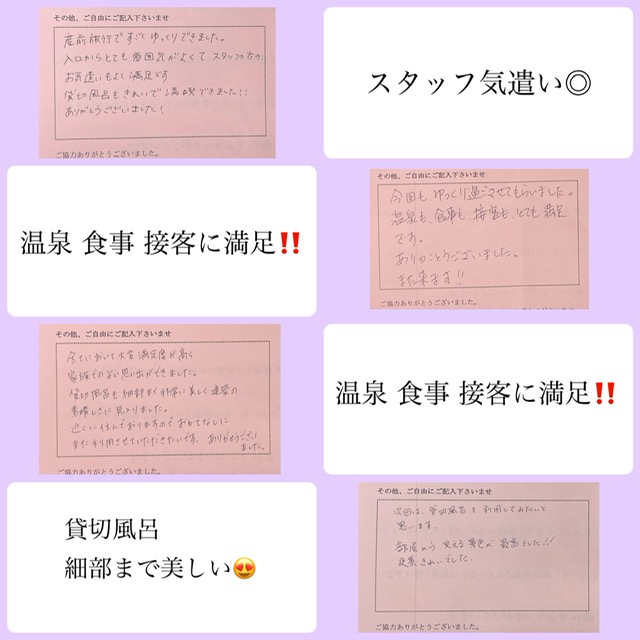 その他、ご自由にご記入下さいませ
産前旅行ですごくゆっくりできました。
入口からとても雰囲気がよくてスタッフの方の
お気遣いもよく満足です
貸切風呂もきれいで満喫できました!!
ありがとうございました!
ご協力ありがとうございました。
スタッフ気遣い◎
温泉 食事 接客に満足‼️
その他、ご自由にご記入下さいませ
今回も、ゆっくり過ごさせてもらいました。
温泉も、食事も、接客も、とても満足
です。
ありがとうございました。
また来ます!!
ご協力ありがとうございました。
その他、ご自由にご記入下さいませ
全てにおいて大変満足度が高く
家族でのよい思い出ができました。
貸切風呂も細部まで非常に美しく建築の
素晴しさに見入りました。
近くに住んでおりますのでおもてなしに
また利用させていただきたいです。ありがとうござい
ました。
ご協力ありがとうございました。
温泉 食事 接客に満足‼️
貸切風呂
細部まで美しい😍
その他、ご自由にご記入下さいませ
次回は、貸切風呂も利用してみたいと
思います。
部屋から見える景色が最高でした!!
夜景きれいでした。
ご協力ありがとうございました。